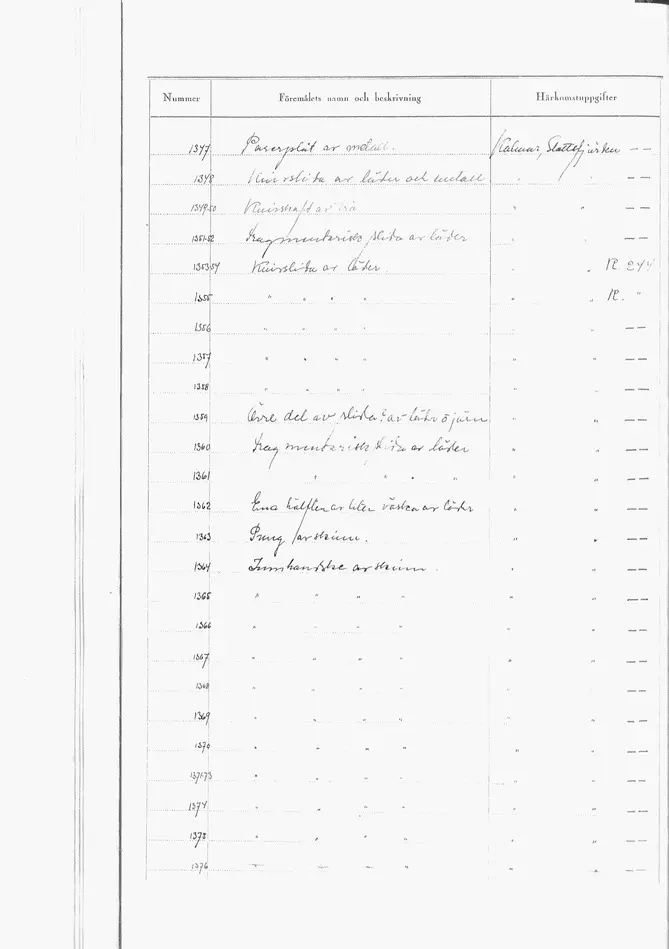 Nummer Föremålets namn och beskrivning Härkomstuppgifter
1347 Panerplåt av metall. Kalmar, Slottsfjärden — —
1348 Knivslida av läder och metall " " — —
1349-50 Knivskaft av trä " " — —
1351-52 Fragmentarisk slida av läder " " — —
1353-54 Knivslida av läder. " " R. 244
1355 " " " " " " R. "
1356 " " " " " " — —
1357 " " " " " " — —
1358 " " " " " " — —
1359 Övre del av slida? av läder o järn " " — —
1360 Fragmentarisk slida av läder " " — —
1361 " " " " " " — —
1362 Ena hälften av liten väska av läder " " — —
1363 Pung av skinn. " " — —
1364 Tumhandske av skinn. " " — —
1365 " " " " " " — —
1366 " " " " " " — —
1367 " " " " " " — —
1368 " " " " " " — —
1369 " " " " " " — —
1370 " " " " " " — —
1371-73 " " " " " " — —
1374 " " " " " " — —
1375 " " " " " " — —
1376 " " " " " " — —